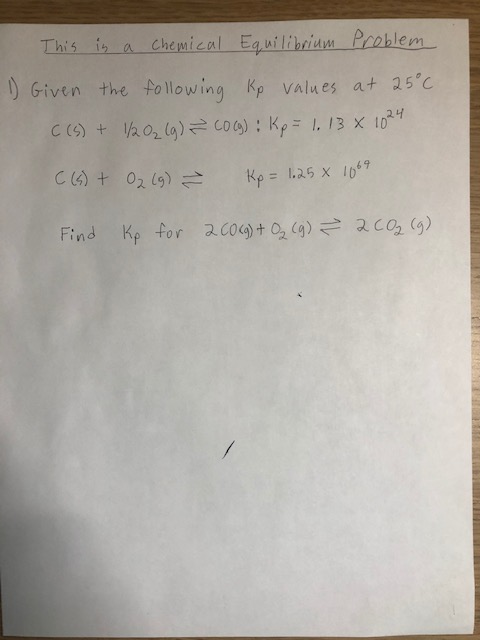 This is a Chemical Equilibrium Problem
1) Given the following Kp values at 25°C
C(s) + 1/2 O₂ (g) ⇌ CO(g) : Kp = 1.13 x 10²⁴
C(s) + O₂ (g) ⇌ Kp = 1.25 x 10⁶⁹
Find Kp for 2CO(g) + O₂ (g) ⇌ 2CO₂ (g)